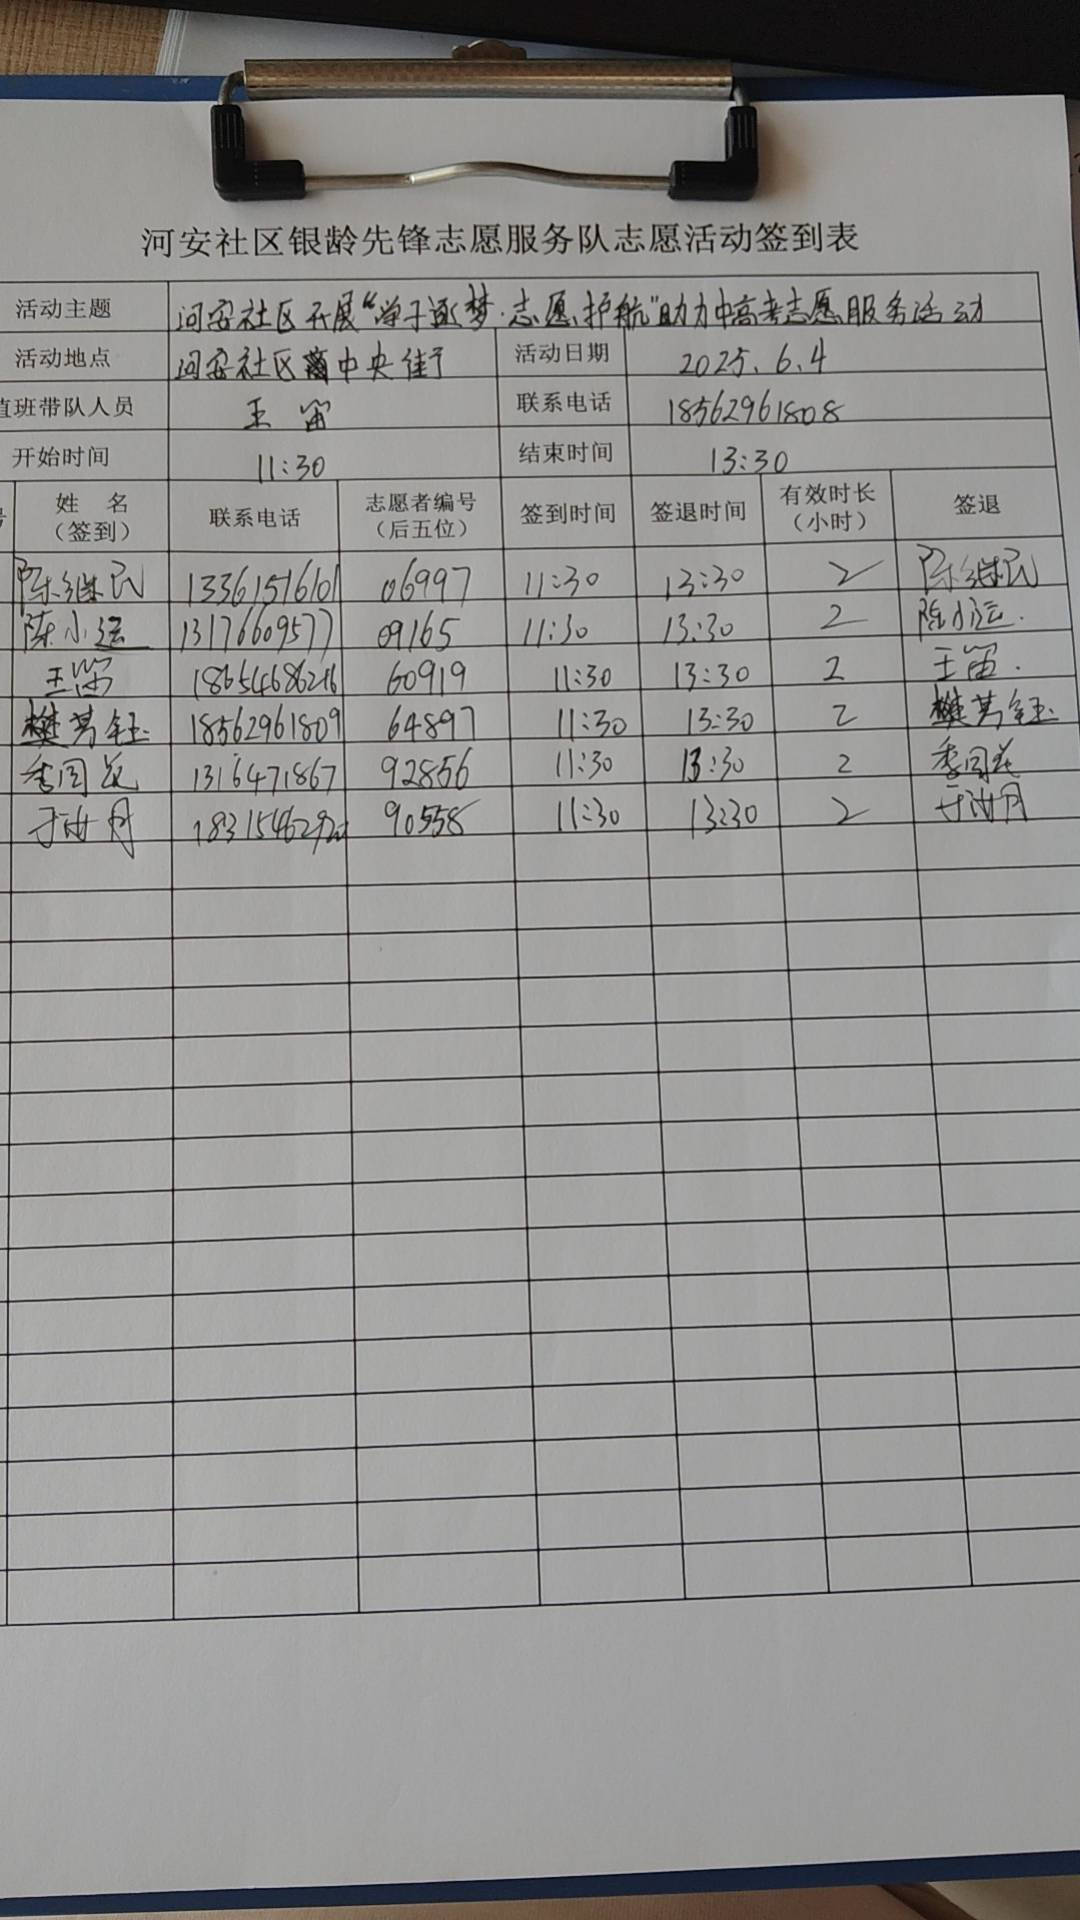 河安社区银龄先锋志愿服务队志愿活动签到表
活动主题 河安社区开展“学子逐梦·志愿护航”助力中高考志愿服务活动
活动地点 河安社区中央街 活动日期 2025.6.4
值班带队人员 王笛 联系电话 18562961808
开始时间 11:30 结束时间 13:30
姓名（签到） 联系电话 志愿者编号（后五位） 签到时间 签退时间 有效时长（小时） 签退
陈继民 13361516101 06997 11:30 13:30 2 陈继民
陈小运 13176609577 09165 11:30 13:30 2 陈小运.
王笛 60919 11:30 13:30 2 王笛.
樊芳钰 18562961809 64897 11:30 13:30 2 樊芳钰
季同花 1316471867 92856 11:30 13:30 2 季同花
于 月 90558 11:30 13:30 2 于 月